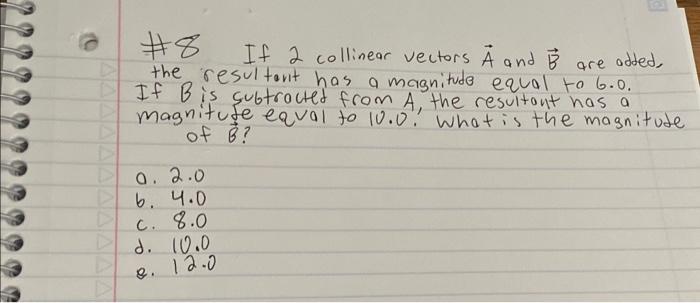 #8 If 2 collinear vectors A⃗ and B⃗ are added,
the resultant has a magnitude equal to 6.0.
If B is subtracted from A, the resultant has a
magnitude equal to 10.0. What is the magnitude
of B⃗?
a. 2.0
b. 4.0
c. 8.0
d. 10.0
e. 12.0